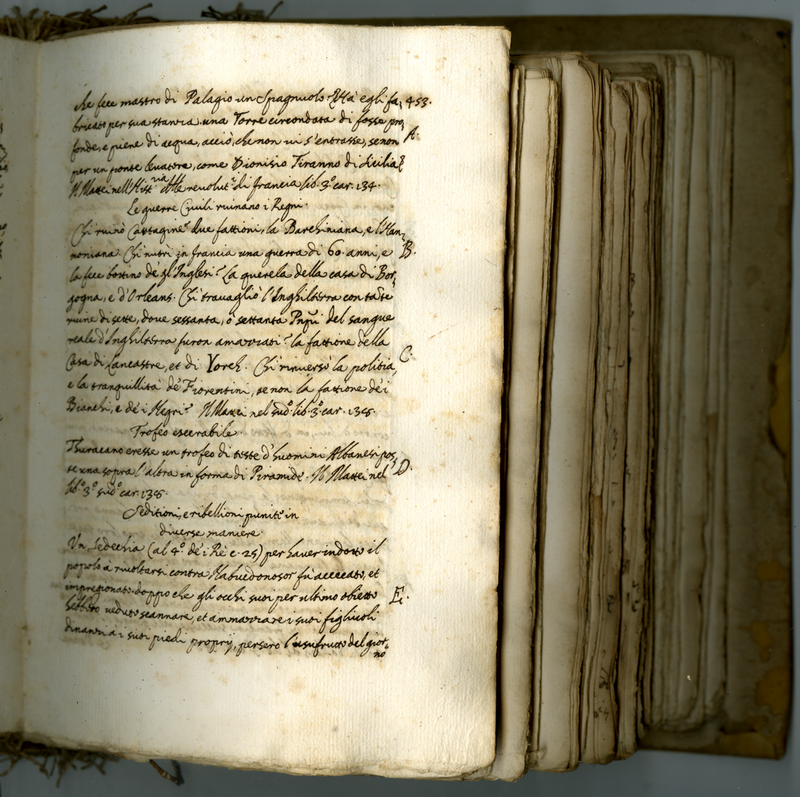 che fece mastro di Palagio un Spagnuolo. Usa' egli fa, 453.
bricato per sua stanza una Torre circondata di fosse pro,
fonde, e piene di acqua, acciò, che non vi s'entrasse, se non A.
per un ponte levatore, come Dionisio Tiranno di Sicilia.
Il Mattei nell'Hist.ria della revolut.e di Francia lib. 3.o car. 134.
Le guerre Civili ruinano i Regni.
Chi ruinò Cartagine? due fattioni, la Barchiniana, e l'Han,
noniana. Chi nutrì in Francia una guerra di 60. anni, e B.
la fece bottino de gl'Inglesi? La querela della casa di Bor,
gogna, e d'Orleans. Chi travagliò l'Inghilterra con tante
ruine di sette, dove sessanta, ò settanta Pn̄pi del sangue
reale d'Inghilterra furon amazzati? la fattione della
Casa di Lancastre, et di Yorch. Chi rinversò la politia, C.
e la tranquillità de' Fiorentini, se non la fattione de i
Bianchi, e de i Negri? Il Mattei nel sud.o lib. 3.o car. 135.
Trofeo essecrabile.
Thuracano eresse un trofeo di teste d'huomini Albanesi pos,
te una sopra l'altra in forma di Piramide. Il Mattei nel D.
lib.o 3.o sud.o car. 135.
Seditioni, e ribellioni punite in
diverse maniere.
Un Sedechia (al 4.o de i Rè c. 25) per haver indotto il
popolo a rivoltarsi contra Nabucdonosor fù accecato, et
impregionato doppo che gli occhi suoi per ultimo obietto E.
hebbero veduto scannare, et ammazzare i suoi figliuoli
dinanzi a i suoi piedi proprij, persero l'usufrutto del gior,
no